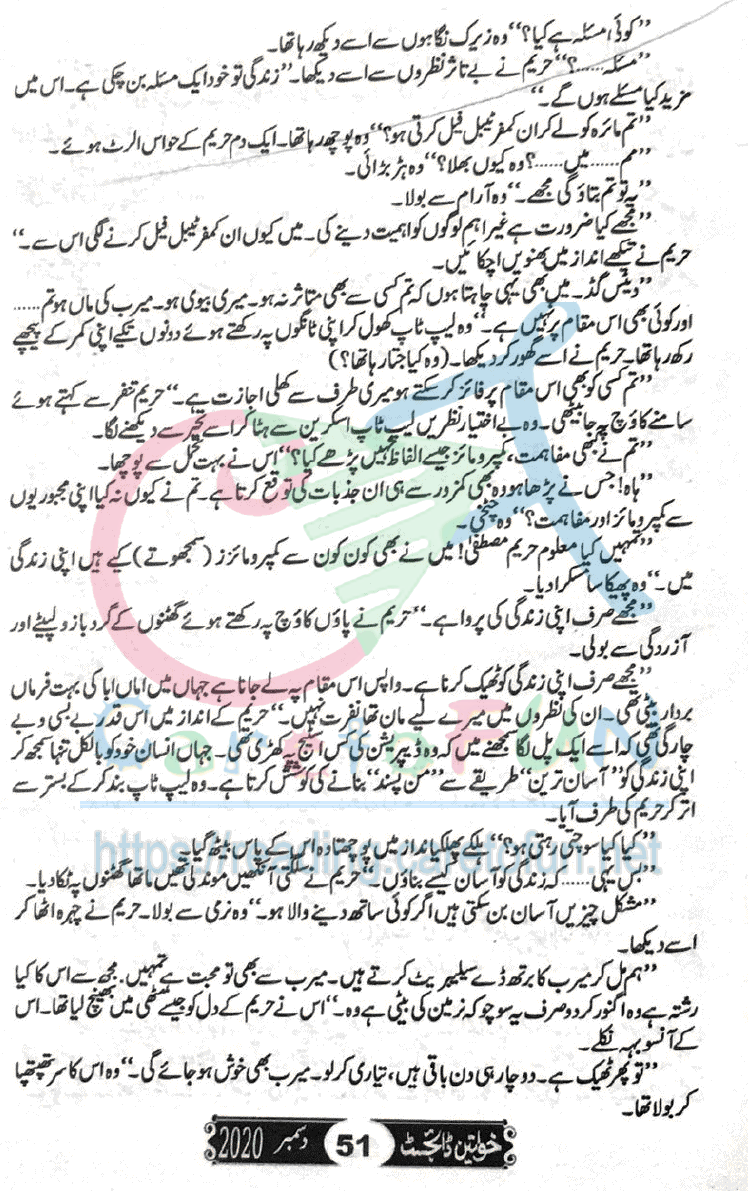 ”کوئی مسئلہ ہے کیا؟“ وہ زیرک نگاہوں سے اسے دیکھ رہا تھا۔
”مسئلہ......؟“ حریم نے بے تاثر نظروں سے اسے دیکھا۔ ”زندگی تو خود ایک مسئلہ بن چکی ہے۔ اس میں
مزید کیا مسئلے ہوں گے۔“
”تم مائرہ کو لے کر ان کمفرٹیبل فیل کرتی ہو؟“ وہ پوچھ رہا تھا۔ ایک دم حریم کے حواس الرٹ ہوئے۔
”مم...... میں......؟ وہ کیوں بھلا؟“ وہ ہڑبڑائی۔
”یہ تو تم بتاؤ گی مجھے۔“ وہ آرام سے بولا۔
”مجھے کیا ضرورت ہے غیر اہم لوگوں کو اہمیت دینے کی۔ میں کیوں ان کمفرٹیبل فیل کرنے لگی اس سے۔“
حریم نے تیکھے انداز میں بھنویں اچکائیں۔
”دیٹس گڈ۔ میں بھی یہی چاہتا ہوں کہ تم کسی سے بھی متاثر نہ ہو۔ میری بیوی ہو۔ میرب کی ماں ہو تم......
اور کوئی بھی اس مقام پر نہیں ہے۔“ وہ لیپ ٹاپ کھول کر اپنی ٹانگوں پہ رکھتے ہوئے دونوں تکیے اپنی کمر کے پیچھے
رکھ رہا تھا۔ حریم نے اسے گھور کر دیکھا۔ (وہ کیا جتا رہا تھا؟)
”تم کسی کو بھی اس مقام پر فائز کر سکتے ہو میری طرف سے کھلی اجازت ہے۔“ حریم تنفر سے کہتے ہوئے
سامنے کاؤچ پہ جا بیٹھی۔ وہ بے اختیار نظریں لیپ ٹاپ اسکرین سے ہٹا کر اسے تحیر سے دیکھنے لگا۔
”تم نے بھی مفاہمت، کمپرومائز جیسے الفاظ نہیں پڑھے کیا؟“ اس نے بہت تحمل سے پوچھا۔
”ہاہ! جس نے پڑھا ہو وہ بھی کمزور سے ہی ان جذبات کی توقع کرتا ہے۔ تم نے کیوں نہ کیا اپنی مجبوریوں
سے کمپرومائز اور مفاہمت؟“ وہ چٹخی۔
”تمہیں کیا معلوم حریم مصطفیٰ! میں نے بھی کون کون سے کمپرومائزز (سمجھوتے) کیے ہیں اپنی زندگی
میں۔“ وہ پھیکا سا مسکرا دیا۔
”مجھے صرف اپنی زندگی کی پروا ہے۔“ حریم نے پاؤں کاؤچ پہ رکھتے ہوئے گھٹنوں کے گرد بازو لپیٹے اور
آزردگی سے بولی۔
”مجھے صرف اپنی زندگی کو ٹھیک کرنا ہے۔ واپس اس مقام پہ لے جانا ہے جہاں میں اماں ابا کی بہت فرماں
بردار بیٹی تھی۔ ان کی نظروں میں میرے لیے مان تھا نفرت نہیں۔“ حریم کے انداز میں اس قدر بے بسی و بے
چارگی تھی کہ اسے ایک پل لگا سمجھنے میں کہ وہ ڈیپریشن کی کس اسٹیج پہ کھڑی تھی۔ جہاں انسان خود کو بالکل تنہا سمجھ کر
اپنی زندگی کو ”آسان ترین“ طریقے سے ”من پسند“ بنانے کی کوشش کرتا ہے۔ وہ لیپ ٹاپ بند کر کے بستر سے
اتر کر حریم کی طرف آیا۔
”کیا کیا سوچتی رہتی ہو؟“ ہلکے پھلکے انداز میں پوچھتا وہ اس کے پاس بیٹھ گیا۔
”بس یہی...... کہ زندگی کو آسان کیسے بناؤں۔“ حریم نے سلگتی آنکھیں موندلی تھیں ماتھا گھٹنوں پہ ٹکا دیا۔
”مشکل چیزیں آسان بن سکتی ہیں اگر کوئی ساتھ دینے والا ہو۔“ وہ نرمی سے بولا۔ حریم نے چہرہ اٹھا کر
اسے دیکھا۔
”ہم مل کر میرب کا برتھ ڈے سیلیبریٹ کرتے ہیں۔ میرب سے بھی تو محبت ہے تمہیں۔ مجھ سے اس کا کیا
رشتہ ہے وہ اگنور کر دو صرف یہ سوچو کہ نرمین کی بیٹی ہے وہ۔“ اس نے حریم کے دل کو جیسے مٹھی میں بھینچ لیا تھا۔ اس
کے آنسو بہہ نکلے۔
”تو پھر ٹھیک ہے۔ دو چار ہی دن باقی ہیں، تیاری کر لو۔ میرب بھی خوش ہو جائے گی۔“ وہ اس کا سر تھپتھپا
کر بولا تھا۔
CaretoFUN
https://reading.caretofun.net
خواتین ڈائجسٹ 51 دسمبر 2020